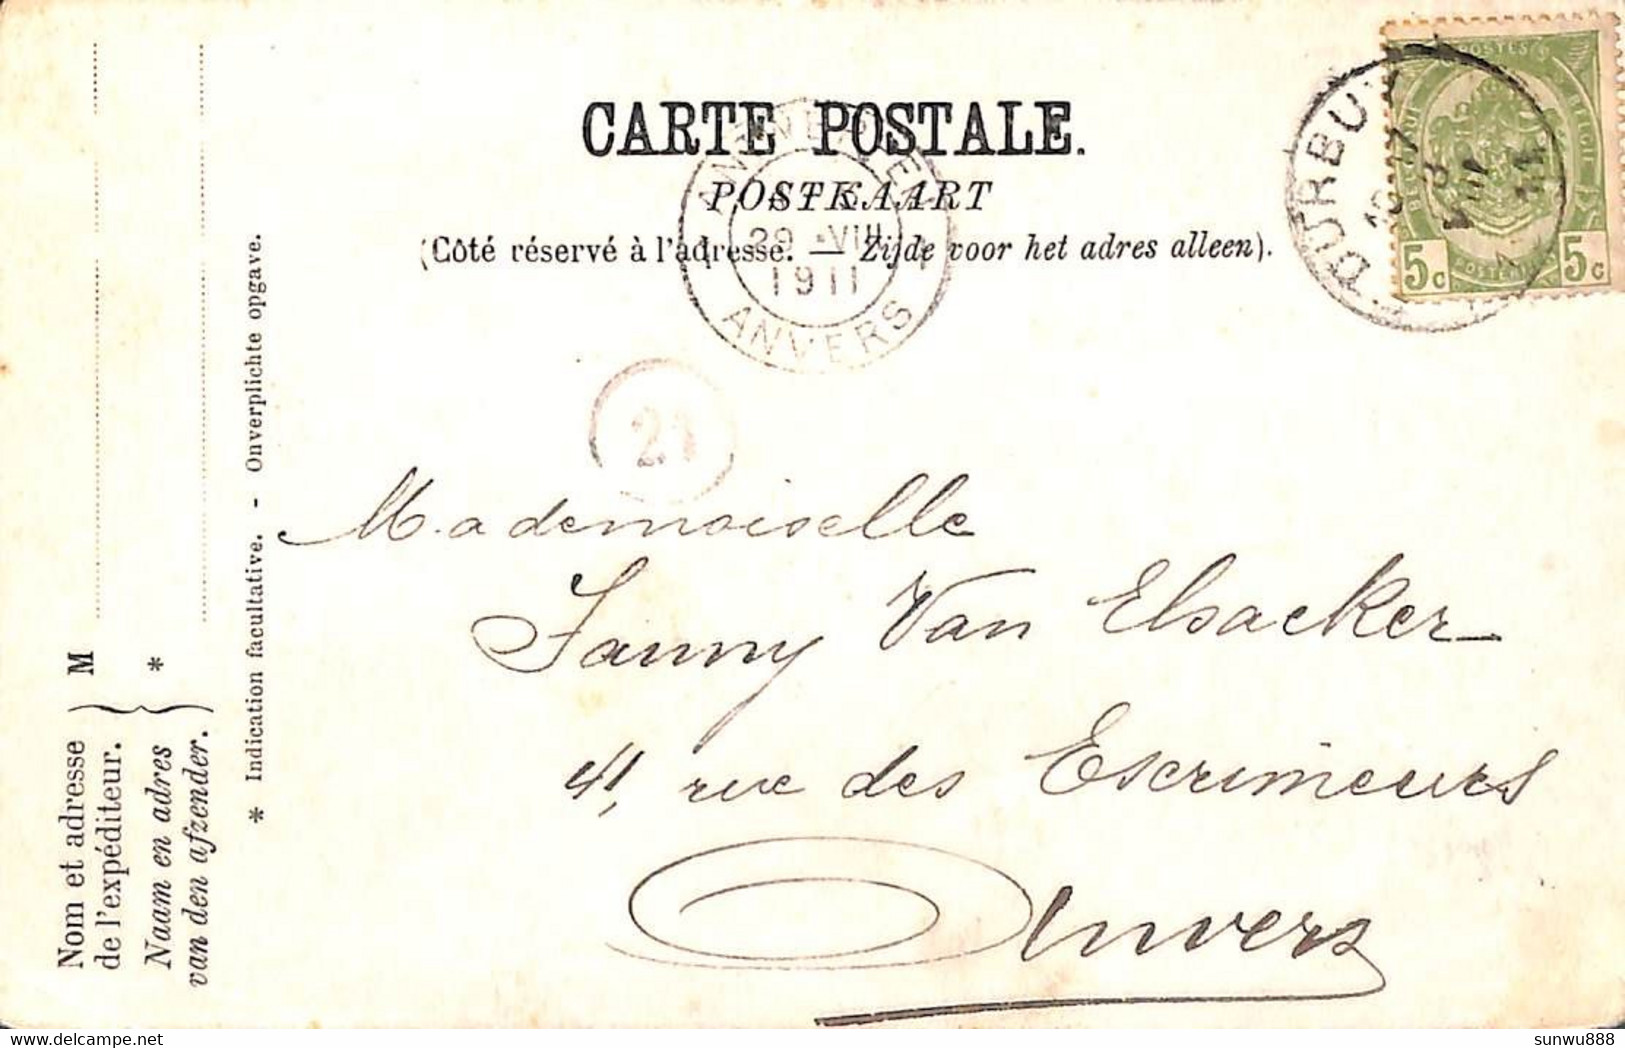 CARTE POSTALE.
POSTKAART
(Côté réservé à l'adresse. — Zijde voor het adres alleen).
ANTWERPEN
29 VIII
1911
ANVERS
DURBUY
POSTES
BELGIQUE
BELGIË
5c
5c
21
Mademoiselle
Fanny Van Elsacker
41, rue des Escrimeurs
Anvers
Nom et adresse
de l'expéditeur.
M
Naam en adres
van den afzender.
*
* Indication facultative. - Onverplichte opgave.
sunwu888